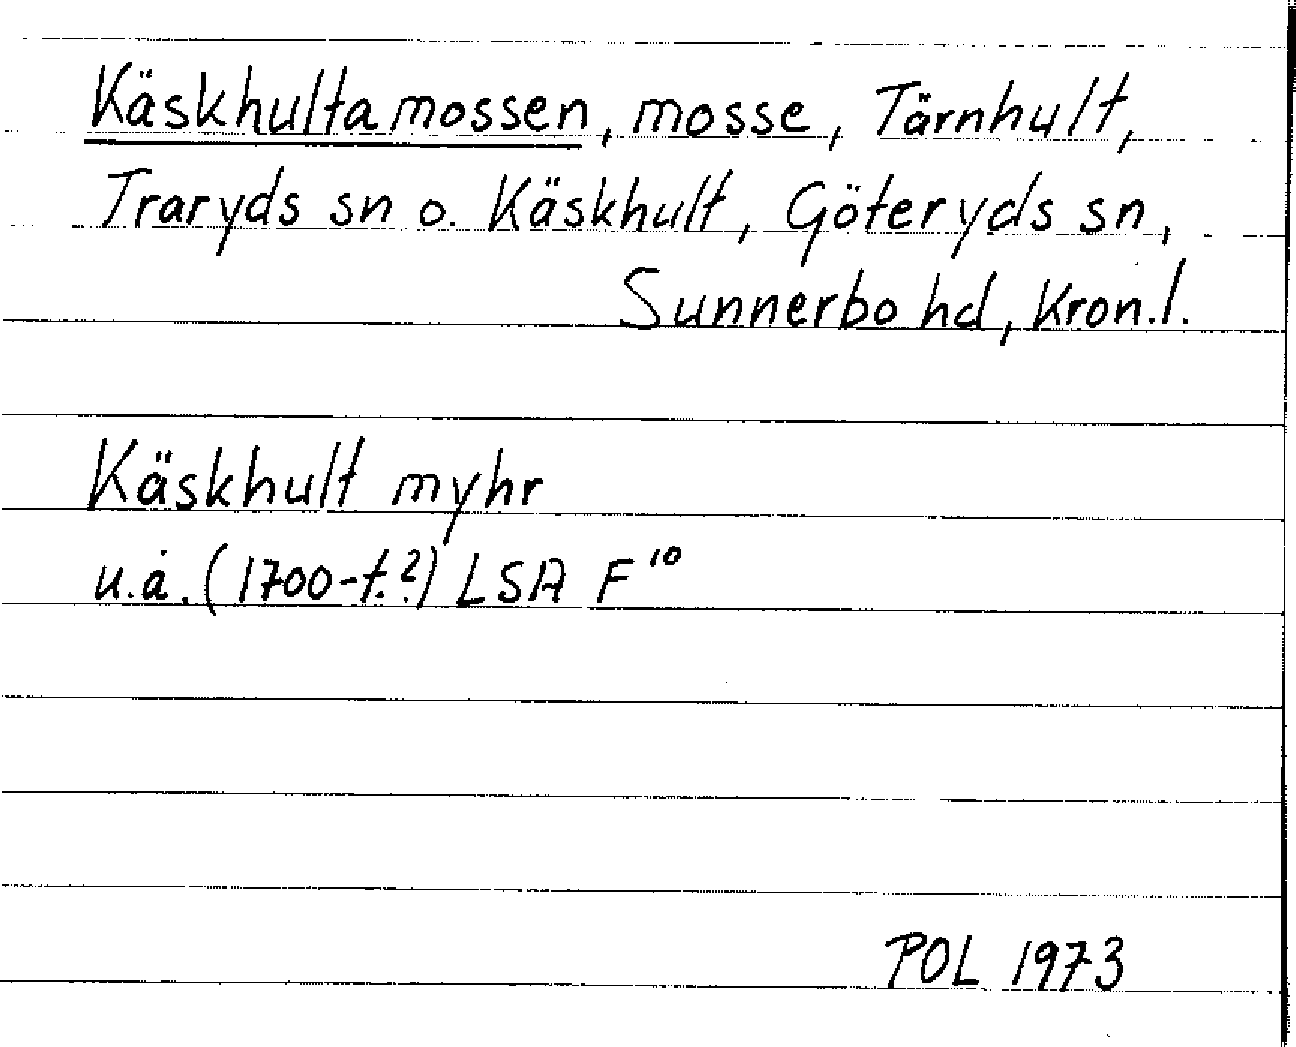 Käskhultamossen, mosse, Tärnhult,
Traryds sn o. Käskhult, Göteryds sn,
Sunnerbo hd, Kron.l.
Käskhult myhr
u.å. (1700-t.?) LSA F¹⁰
POL 1973